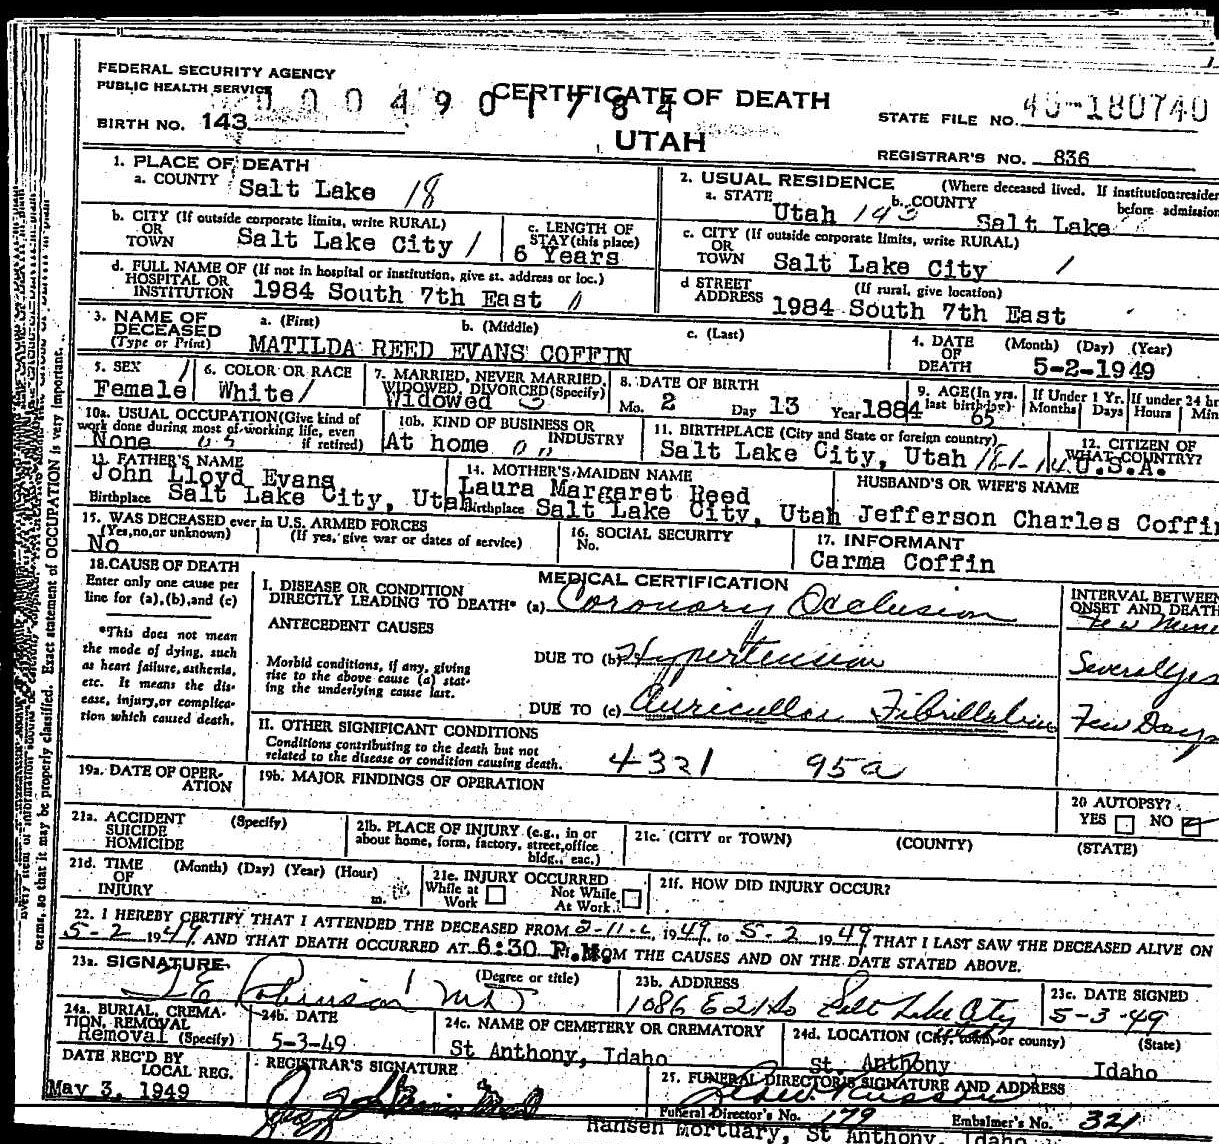 FEDERAL SECURITY AGENCY
PUBLIC HEALTH SERVICE
0004901784
CERTIFICATE OF DEATH
UTAH
BIRTH NO. 143
STATE FILE NO. 180740
REGISTRAR'S NO. 836
1. PLACE OF DEATH
a. COUNTY Salt Lake 18
b. CITY (If outside corporate limits, write RURAL)
OR
TOWN Salt Lake City 1
c. LENGTH OF
STAY (this place)
6 Years
d. FULL NAME OF (If not in hospital or institution, give st. address or loc.)
HOSPITAL OR
INSTITUTION 1984 South 7th East
2. USUAL RESIDENCE (Where deceased lived. If institution: residen
before admission
a. STATE Utah 143 b. COUNTY Salt Lake
c. CITY (If outside corporate limits, write RURAL)
OR
TOWN Salt Lake City 1
d STREET (If rural, give location)
ADDRESS 1984 South 7th East
3. NAME OF
DECEASED
(Type or Print)
a. (First) b. (Middle) c. (Last)
MATILDA REED EVANS COFFIN
4. DATE (Month) (Day) (Year)
OF
DEATH 5-2-1949
5. SEX
Female
6. COLOR OR RACE
White
7. MARRIED, NEVER MARRIED,
WIDOWED, DIVORCED (Specify)
Widowed
8. DATE OF BIRTH
Mo. 2 Day 13 Year 1884
9. AGE (In yrs.
last birthday)
65
If Under 1 Yr.
Months Days
If under 24 hr
Hours Min
10a. USUAL OCCUPATION (Give kind of
work done during most of working life, even
if retired)
None
10b. KIND OF BUSINESS OR
INDUSTRY
At home
11. BIRTHPLACE (City and State or foreign country)
Salt Lake City, Utah
12. CITIZEN OF
WHAT COUNTRY?
U.S.A.
13. FATHER'S NAME
John Lloyd Evans
Birthplace Salt Lake City, Utah
14. MOTHER'S MAIDEN NAME
Laura Margaret Reed
Birthplace Salt Lake City, Utah
HUSBAND'S OR WIFE'S NAME
Jefferson Charles Coffin
15. WAS DECEASED ever in U.S. ARMED FORCES
(Yes, no, or unknown) (If yes, give war or dates of service)
No
16. SOCIAL SECURITY
No.
17. INFORMANT
Carma Coffin
18. CAUSE OF DEATH
Enter only one cause per
line for (a), (b), and (c)
*This does not mean
the mode of dying, such
as heart failure, asthenia,
etc. It means the dis-
ease, injury, or complica-
tion which caused death.
MEDICAL CERTIFICATION
I. DISEASE OR CONDITION
DIRECTLY LEADING TO DEATH* (a) Coronary Occlusion
ANTECEDENT CAUSES
Morbid conditions, if any, giving
rise to the above cause (a) stat-
ing the underlying cause last.
DUE TO (b) Hypertension
DUE TO (c) Auricullar Fibrillation
INTERVAL BETWEEN
ONSET AND DEATH
Few
Several yrs
Few Days
II. OTHER SIGNIFICANT CONDITIONS
Conditions contributing to the death but not
related to the disease or condition causing death.
4321 95a
19a. DATE OF OPER-
ATION
19b. MAJOR FINDINGS OF OPERATION
20 AUTOPSY?
YES NO
21a. ACCIDENT (Specify)
SUICIDE
HOMICIDE
21b. PLACE OF INJURY (e.g., in or
about home, form, factory, street, office
bldg., eac.)
21c. (CITY or TOWN) (COUNTY) (STATE)
21d. TIME (Month) (Day) (Year) (Hour)
OF
INJURY m.
21e. INJURY OCCURRED
While at Work Not While At Work
21f. HOW DID INJURY OCCUR?
22. I HEREBY CERTIFY THAT I ATTENDED THE DECEASED FROM 1949, to 5-2 1949 THAT I LAST SAW THE DECEASED ALIVE ON
5-2 1949 AND THAT DEATH OCCURRED AT 6:30 P.M. FROM THE CAUSES AND ON THE DATE STATED ABOVE.
23a. SIGNATURE (Degree or title)
Robinson MD
23b. ADDRESS
1086 E 21 So Salt Lake City Utah
23c. DATE SIGNED
5-3-49
24a. BURIAL, CREMA-
TION, REMOVAL
(Specify)
Removal
24b. DATE
5-3-49
24c. NAME OF CEMETERY OR CREMATORY
St Anthony, Idaho
24d. LOCATION (City, town, or county) (State)
St. Anthony Idaho
DATE REC'D BY
LOCAL REG.
May 3, 1949
REGISTRAR'S SIGNATURE
25. FUNERAL DIRECTOR'S SIGNATURE AND ADDRESS
Funeral Director's No. 179 Embalmer's No. 321
Hansen Mortuary, St Anthony, Idaho
terms, so that it may be properly classified. Exact statement of OCCUPATION is very important.